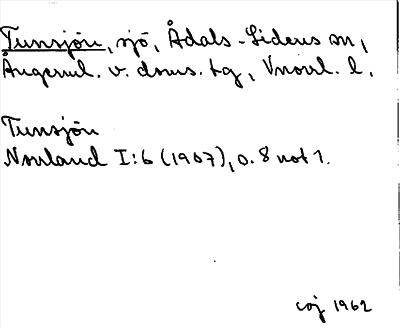 Tunsjön, sjö, Ådals-Lidens sn,
Ångerml. v. doms. tg, Vnorrl. l.
Tunsjön
Norrland I:6 (1907), s. 8 not 1.
coj 1962